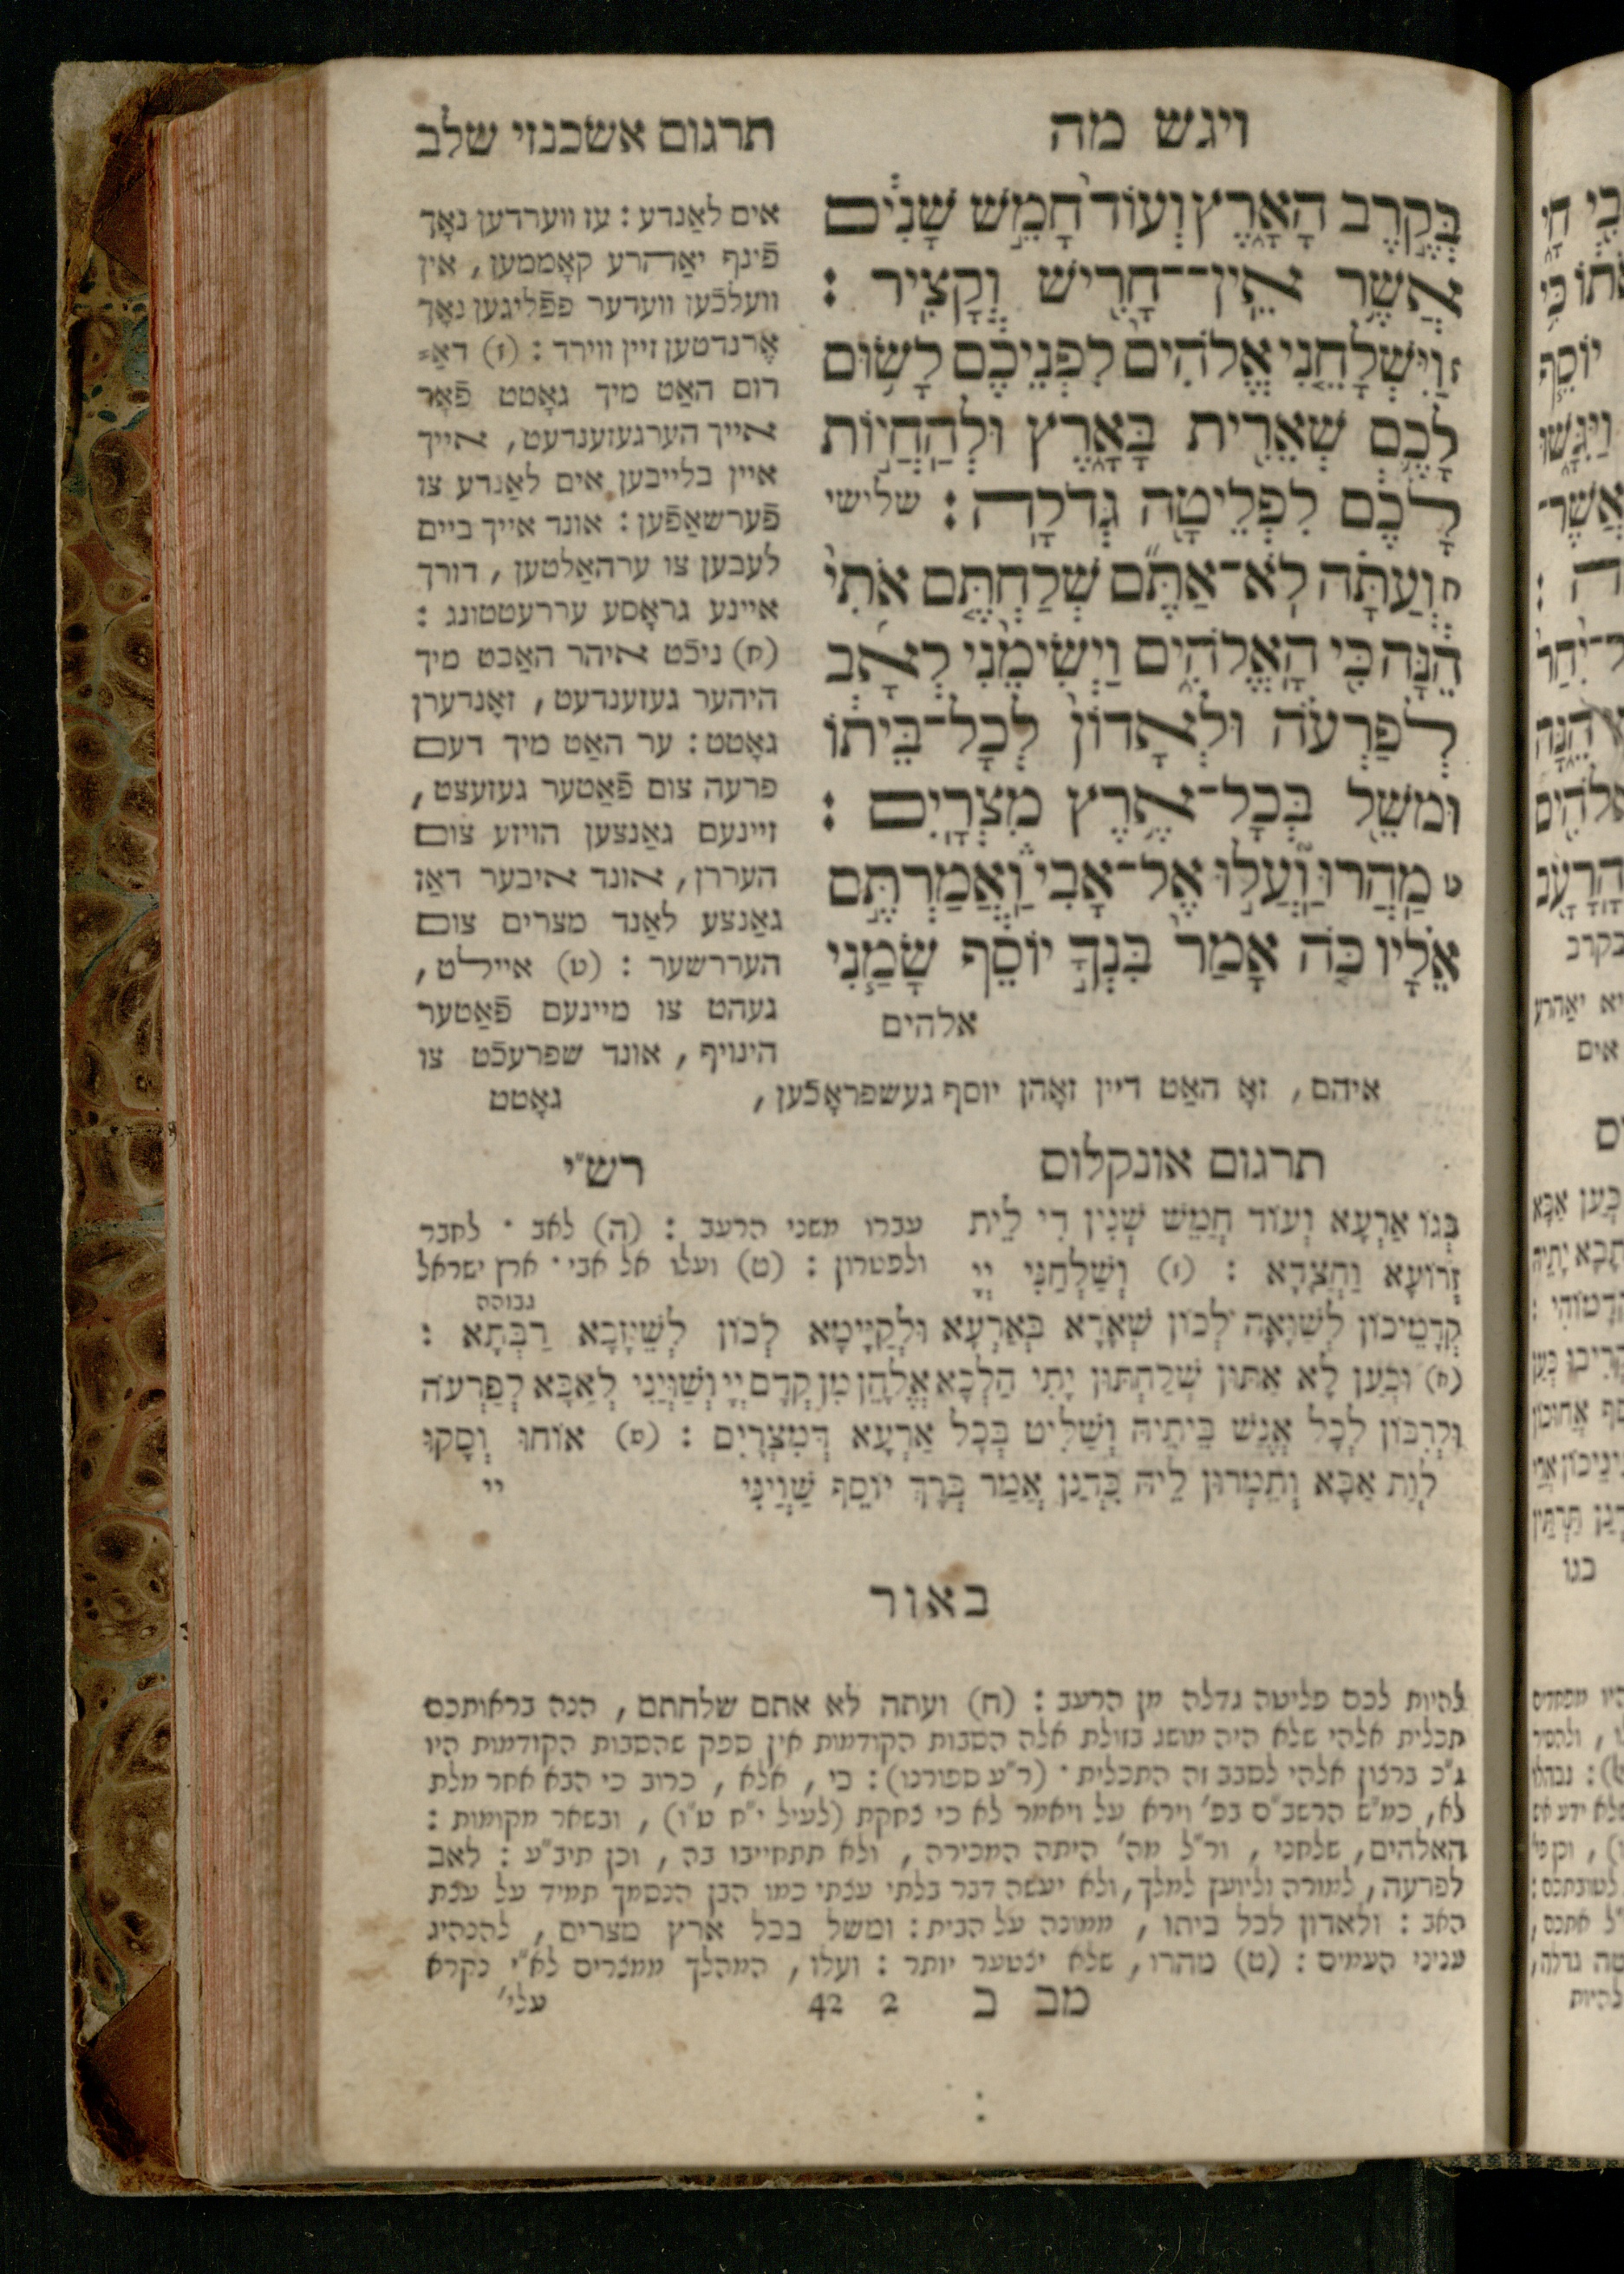 ויגש מה
תרגום אשכנזי שלב
בְּקֶרֶב הָאָרֶץ וְעוֹד חָמֵשׁ שָׁנִים
אֲשֶׁר אֵין־חָרִישׁ וְקָצִיר :
ז וַיִּשְׁלָחֵנִי אֱלֹהִים לִפְנֵיכֶם לָשׂוּם
לָכֶם שְׁאֵרִית בָּאָרֶץ וּלְהַחֲיוֹת
לָכֶם לִפְלֵיטָה גְּדֹלָה : שלישי
ח וְעַתָּה לֹא־אַתֶּם שְׁלַחְתֶּם אֹתִי
הֵנָּה כִּי הָאֱלֹהִים וַיְשִׂימֵנִי לְאָב
לְפַרְעֹה וּלְאָדוֹן לְכָל־בֵּיתוֹ
וּמֹשֵׁל בְּכָל־אֶרֶץ מִצְרָיִם :
ט מַהֲרוּ וַעֲלוּ אֶל־אָבִי וַאֲמַרְתֶּם
אֵלָיו כֹּה אָמַר בִּנְךָ יוֹסֵף שָׂמַנִי
אלהים
אים לאַנדע : עז ווערדען נאָך
פֿינף יאַהרע קאָממען , אין
וועלכֿען וועדער פפֿליגען נאָך
אֶרנדטען זיין ווירד : (ז) דאַ⸗
רום האַט מיך גאָטט פֿאָר
אייך הערגעזענדעט , אייך
איין בלייבען אים לאַנדע צו
פֿערשאַפֿען : אונד אייך ביים
לעבען צו ערהאַלטען , דורך
איינע גראָסע עררעטטונג :
(ח) ניכֿט איהר האַבט מיך
היהער געזענדעט , זאָנדערן
גאָטט : ער האַט מיך דעם
פרעה צום פֿאַטער געזעצט ,
זיינעם גאַנצען הויזע צום
העררן , אונד איבער דאַז
גאַנצע לאַנד מצרים צום
העררשער : (ט) איילט ,
געהט צו מיינעם פֿאַטער
הינויף , אונד שפרעכֿט צו
איהם , זאָ האַט דיין זאָהן יוסף געשפראָכֿען , גאָטט
תרגום אונקלוס
בְּגוֹ אַרְעָא וְעוֹד חֲמֵשׁ שְׁנִין דִי לֵית
זְרוֹעָא וַחֲצָדָא : (ז) וְשַׁלְחַנִּי יְיָ
קְדָמֵיכוֹן לְשַׁוָּאָה לְכוֹן שְׁאָרָא בְּאַרְעָא וּלְקַיָּימָא לְכוֹן לְשֵׁיזָבָא רַבְּתָא :
(ח) וּכְעַן לָא אַתּוּן שְׁלַחְתּוּן יָתִי הַלְכָא אֱלָהֵן מִן קְדָם יְיָ וְשַׁוְּיַנִי לְאַבָּא לְפַרְעֹה
וּלְרִבּוֹן לְכָל אֱנַשׁ בֵּיתֵיהּ וְשַׁלִּיט בְּכָל אַרְעָא דְּמִצְרָיִם : (ט) אוֹחוּ וְסָקוּ
לְוַת אַבָּא וְתֵמְרוּן לֵיהּ כִּדְנַן אֲמַר בְּרָךְ יוֹסֵף שַׁוְּיַנִּי יי
רש״י
עברו משני הרעב : (ח) לאב ּ לחבר
ולפטרון : (ט) ועלו אל אבי ּ ארץ ישראל
גבוהה
באור
להיות לכם פליטה גדלה מן הרעב : (ח) ועתה לא אתם שלחתם , הנה בראותכם
תכלית אלהי שלא היה מושג בזולת אלה הסבות הקודמות אין ספק שהסבות הקודמות היו
ג״כ ברצון אלהי לסבב זה התכלית ּ (ר״ע ספורנו) : כי , אלא , כרוב כי הבא אחר מלת
לא , כמ״ש הרשב״ם בפ׳ וירא על ויאמר לא כי צחקת (לעיל י״ח ט״ו) , ובשאר מקומות :
האלהים , שלחני , ור״ל מה׳ היתה המכירה , ולא תתחייבו בה , וכן תיב״ע : לאב
לפרעה , למורה וליועץ למלך , ולא יעשה דבר בלתי עצתי כמו הבן הנסמך תמיד על עצת
האב : ולאדון לכל ביתו , ממונה על הבית : ומשל בכל ארץ מצרים , להנהיג
עניני העמים : (ט) מהרו , שלא יצטער יותר : ועלו , ההולך ממצרים לא״י נקרא
מב ב 2 42 עלי׳